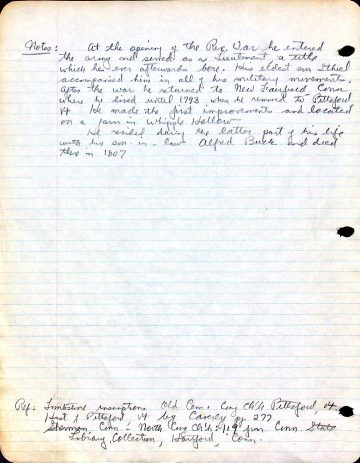 Notes: At the opening of the Rev. War he entered
the army and served as a Lieutenant, a title
which he ever afterwards bore. His eldest son Ethiel
accompanied him in all of his military movements.
After the war he returned to New Fairfield Conn
where he lived until 1793 when he removed to Pittsford
Vt. He made the first improvements and located
on a farm in Whipple Hollow
He resided during the latter part of his life
with his son-in-law Alfred Buck and died
there in 1807
Ref: Tombstone inscriptions Old Cem. Cong Ch'h Pittsford, Vt.
Hist of Pittsford Vt by Caverly pg 277
Sherman, Conn - North Cong Ch'h - 119 from Conn. State
Library Collection, Hartford, Conn.